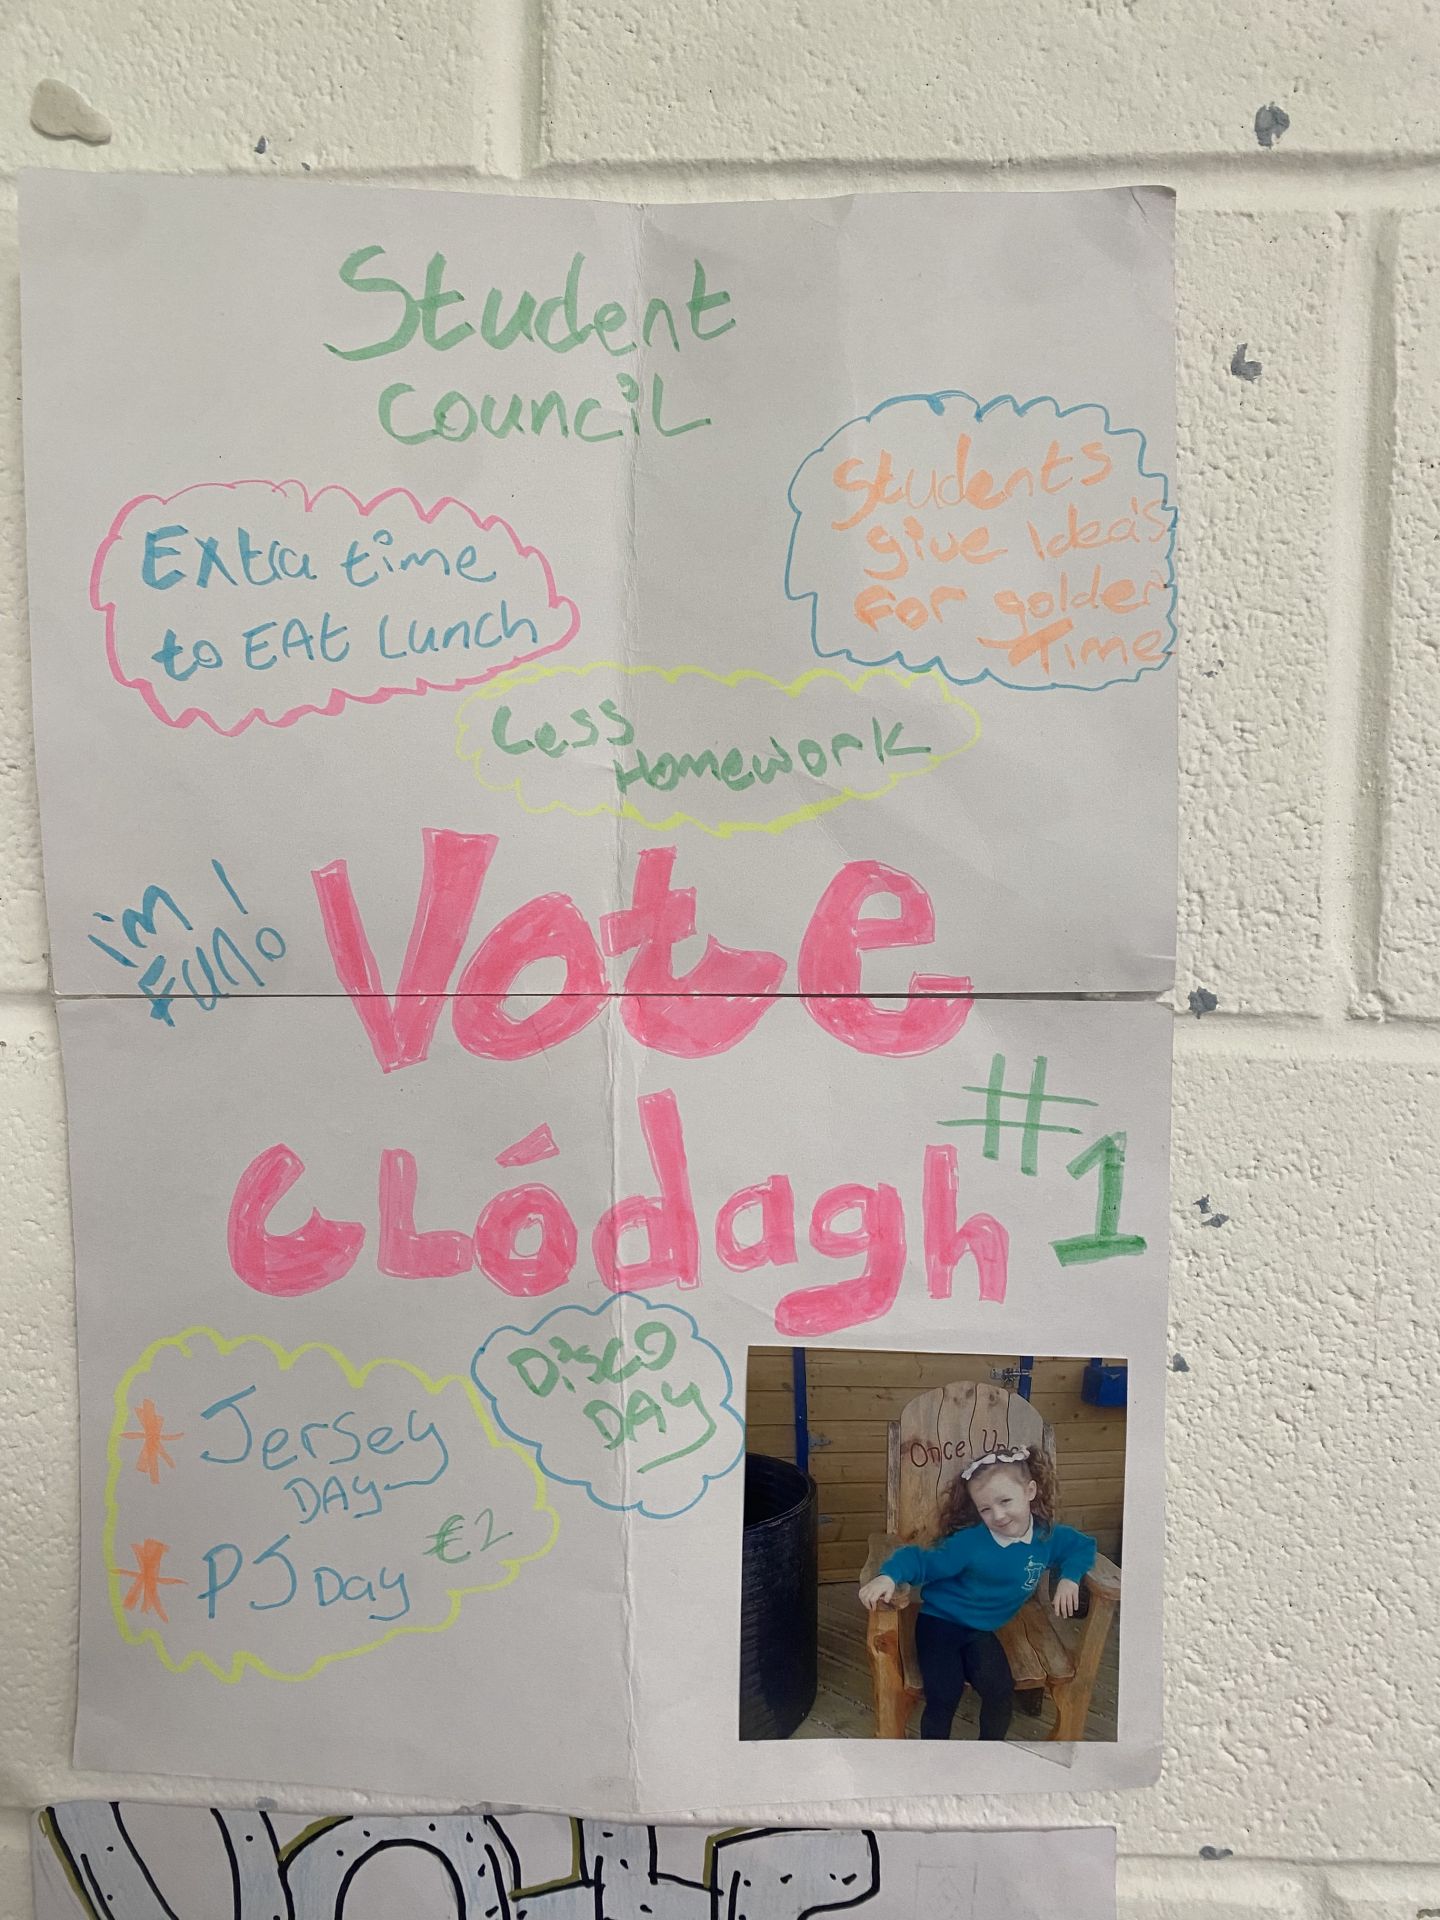 Student
Council
Extra time
to EAt Lunch
Students
give Idea's
For golden
Time
Less
Homework
I'm
Fun!
Vote
CLódagh
#1
Jersey
DAy
PJ Day €2
Disco
DAy
Once Upo
Vote